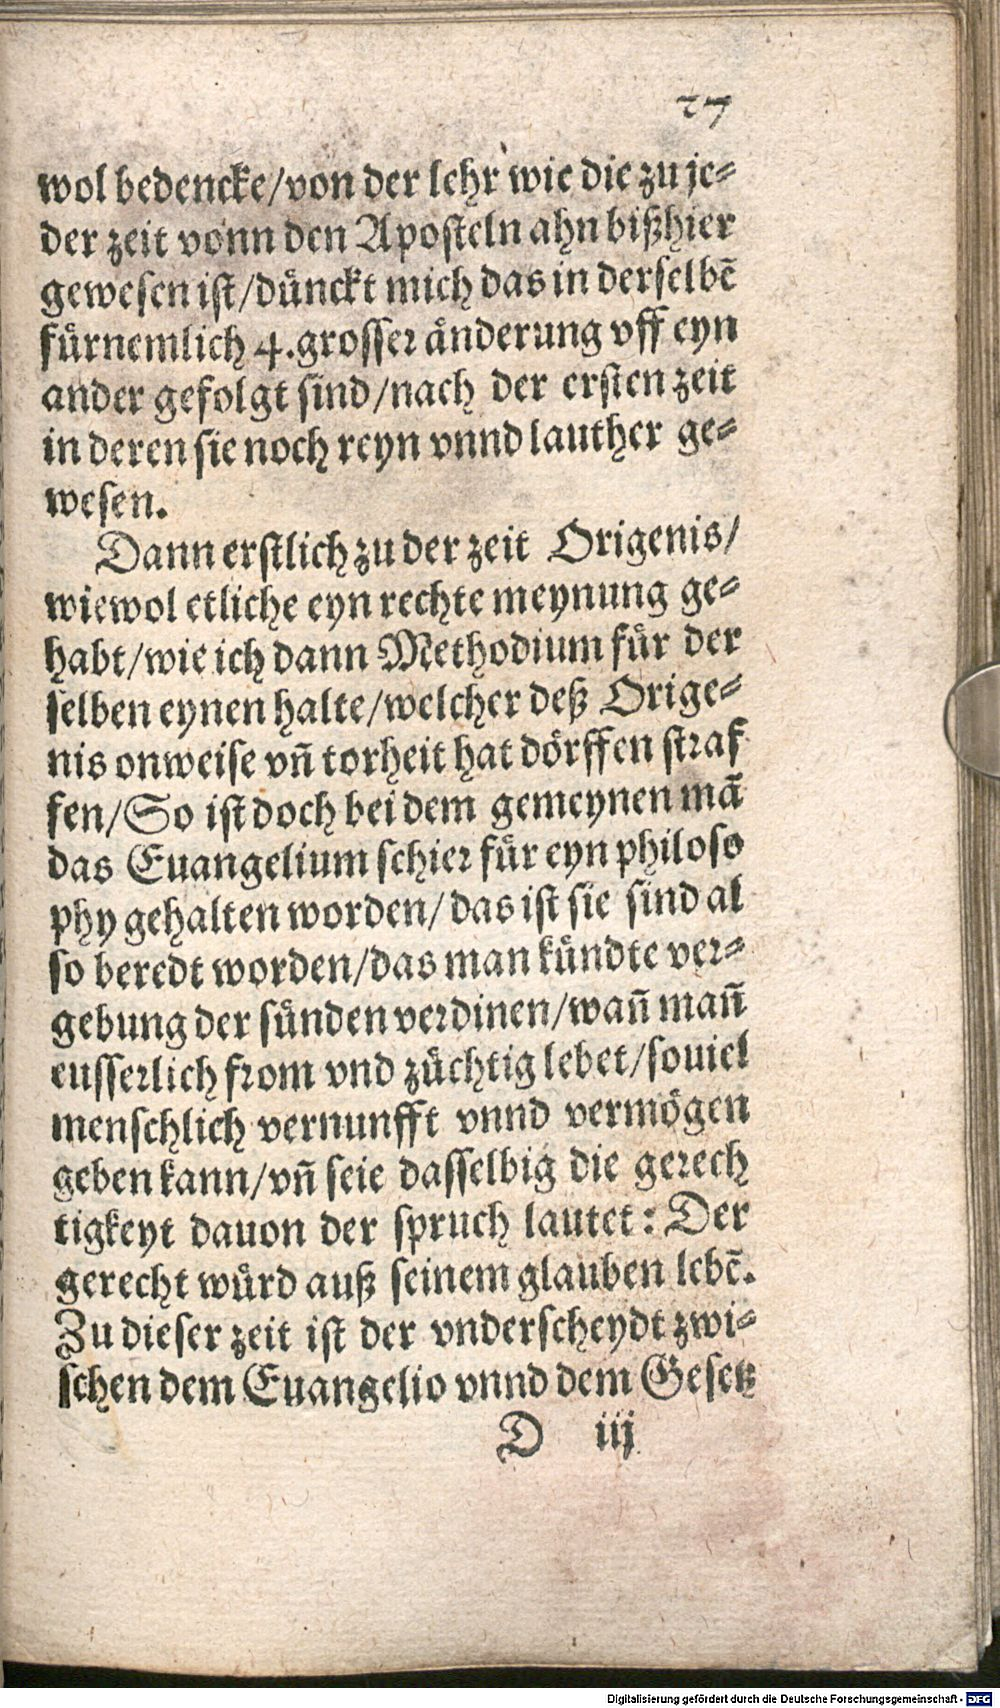 27
wol bedencke/von der lehr wie die zu je⸗
der zeit vonn den Aposteln ahn bißhier
gewesen ist/dünckt mich das in derselbē
fürnemlich 4.grosser änderung vff eyn
ander gefolgt sind/nach der ersten zeit
in deren sie noch reyn vnnd lauther ge⸗
wesen.
Dann erstlich zu der zeit Origenis/
wiewol etliche eyn rechte meynung ge⸗
habt/wie ich dann Methodium für der
selben eynen halte/welcher deß Orige⸗
nis onweise vñ torheit hat dörffen straf
fen/So ist doch bei dem gemeynen mā
das Euangelium schier für eyn philoso
phy gehalten worden/das ist sie sind al
so beredt worden/das man kündte ver⸗
gebung der sünden verdinen/wañ mañ
eusserlich from vnd züchtig lebet/souiel
menschlich vernunfft vnnd vermögen
geben kann/vñ seie dasselbig die gerech
tigkeyt dauon der spruch lautet: Der
gerecht würd auß seinem glauben lebē.
Zu dieser zeit ist der vnderscheydt zwi⸗
schen dem Euangelio vnnd dem Gesetz
D iij
Digitalisierung gefördert durch die Deutsche Forschungsgemeinschaft - DFG